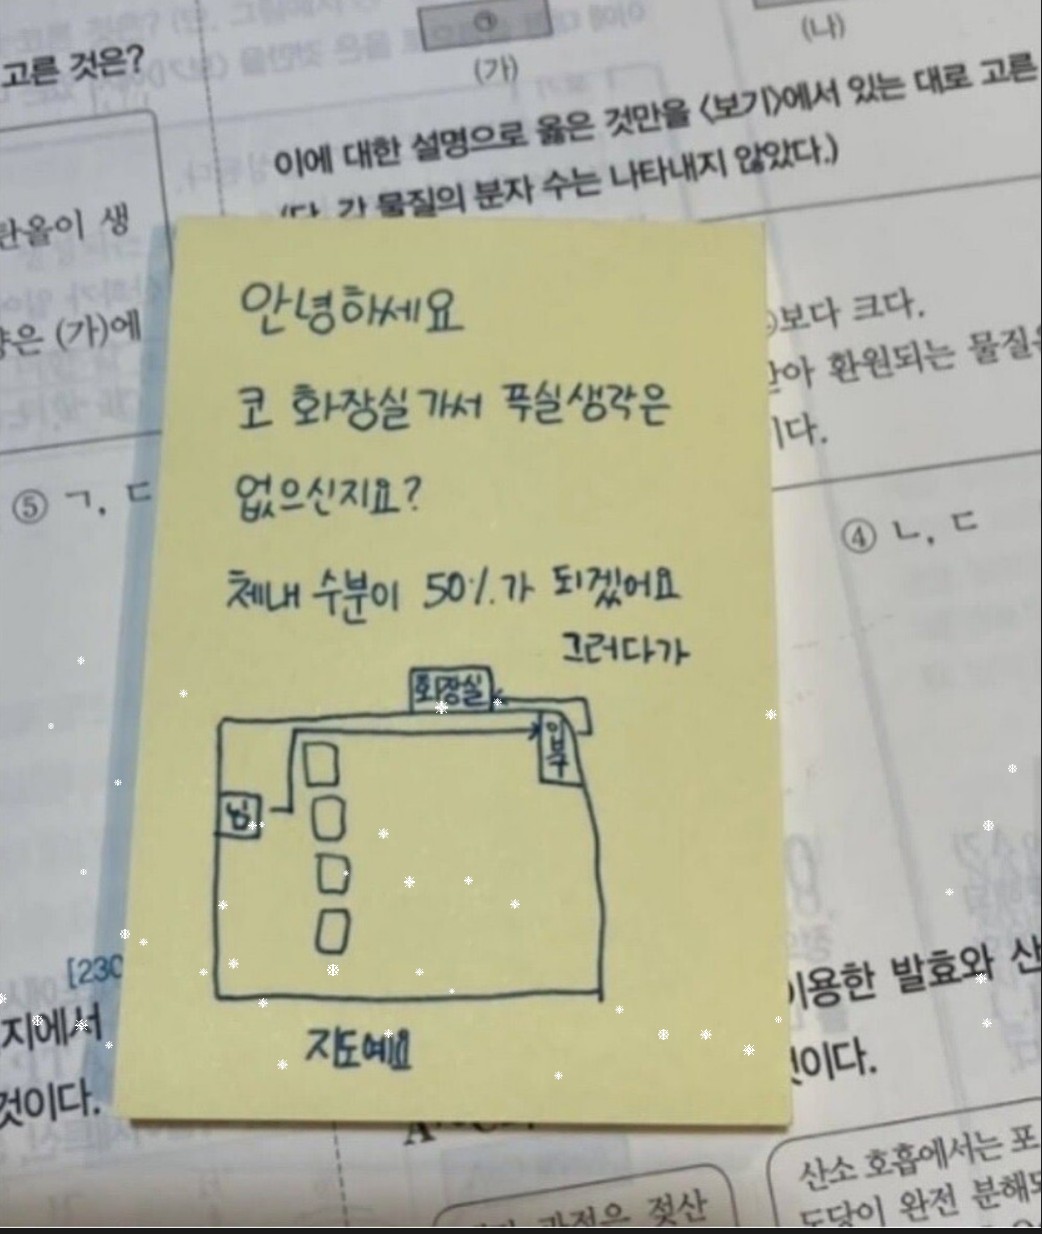 고른 것은?
㉠
(가)
(나)
이에 대한 설명으로 옳은 것만을 <보기>에서 있는 대로 고른
(단, 각 물질의 분자 수는 나타내지 않았다.)
탄올이 생
(가)에
보다 크다.
환원되는 물질은
이다.
⑤ ㄱ, ㄷ
④ ㄴ, ㄷ
안녕하세요
코 화장실가서 푹실생각은
없으신지요?
체내 수분이 50%가 되겠어요
그러다가
화장실
입구
님
지도예요
[230
지에서
것이다.
이용한 발효와 산
것이다.
산소 호흡에서는 포
도당이 완전 분해되
과정은 젖산